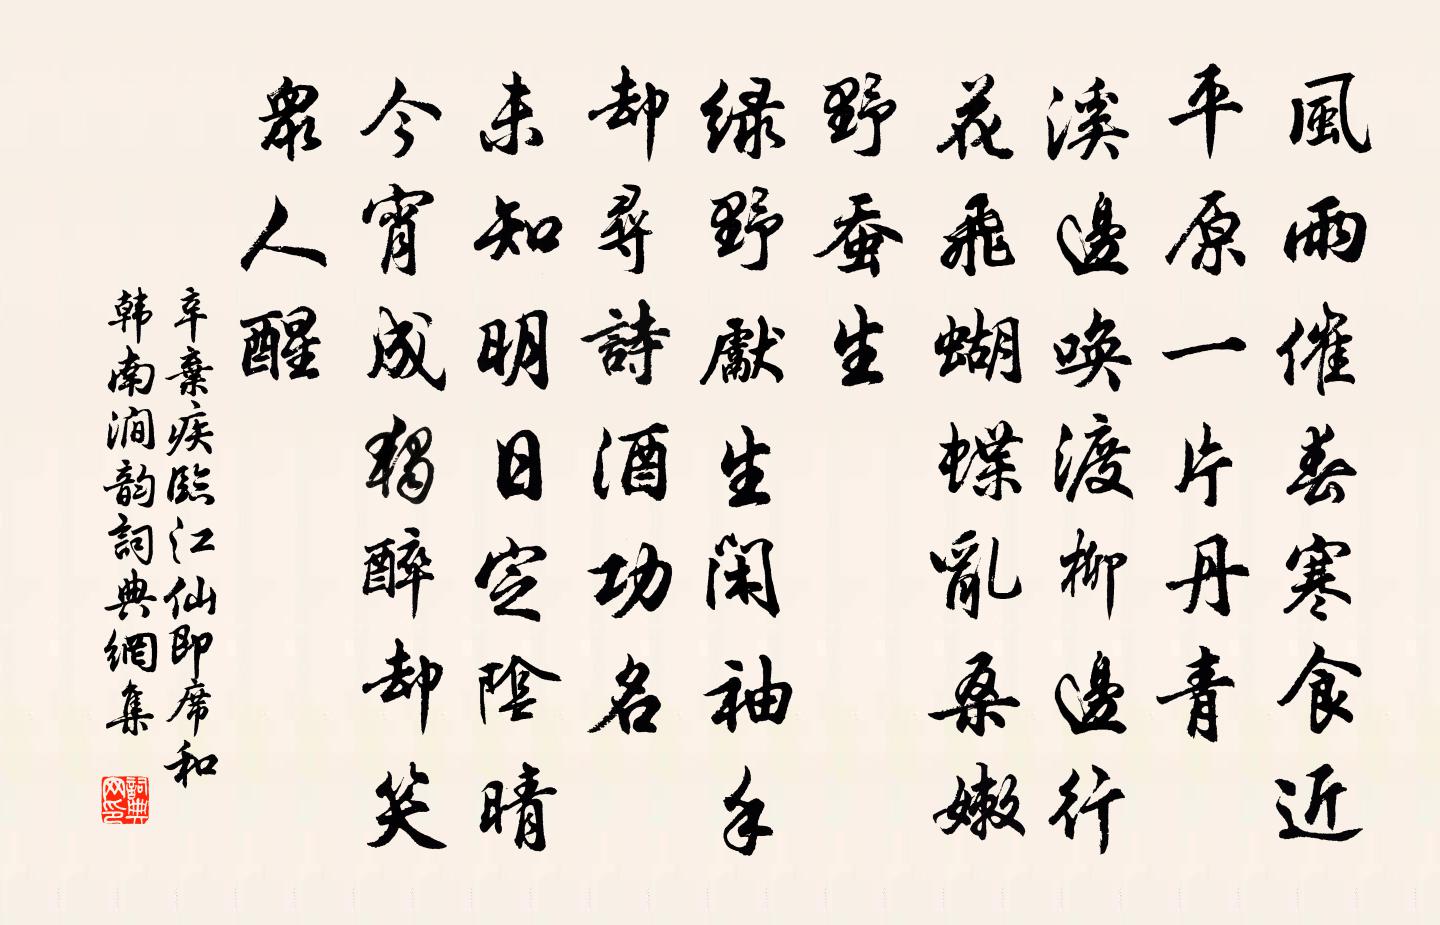 風雨催春寒食近
平原一片丹青
溪邊喚渡柳邊行
花飛蝴蝶亂桑嫩
野蚕生
緑野獻生閑袖手
却尋詩酒功名
未知明日定陰晴
今宵成獨醉却笑
眾人醒
辛棄疾臨江仙即席和
韩南澗韵詞典網集
詞典
网印